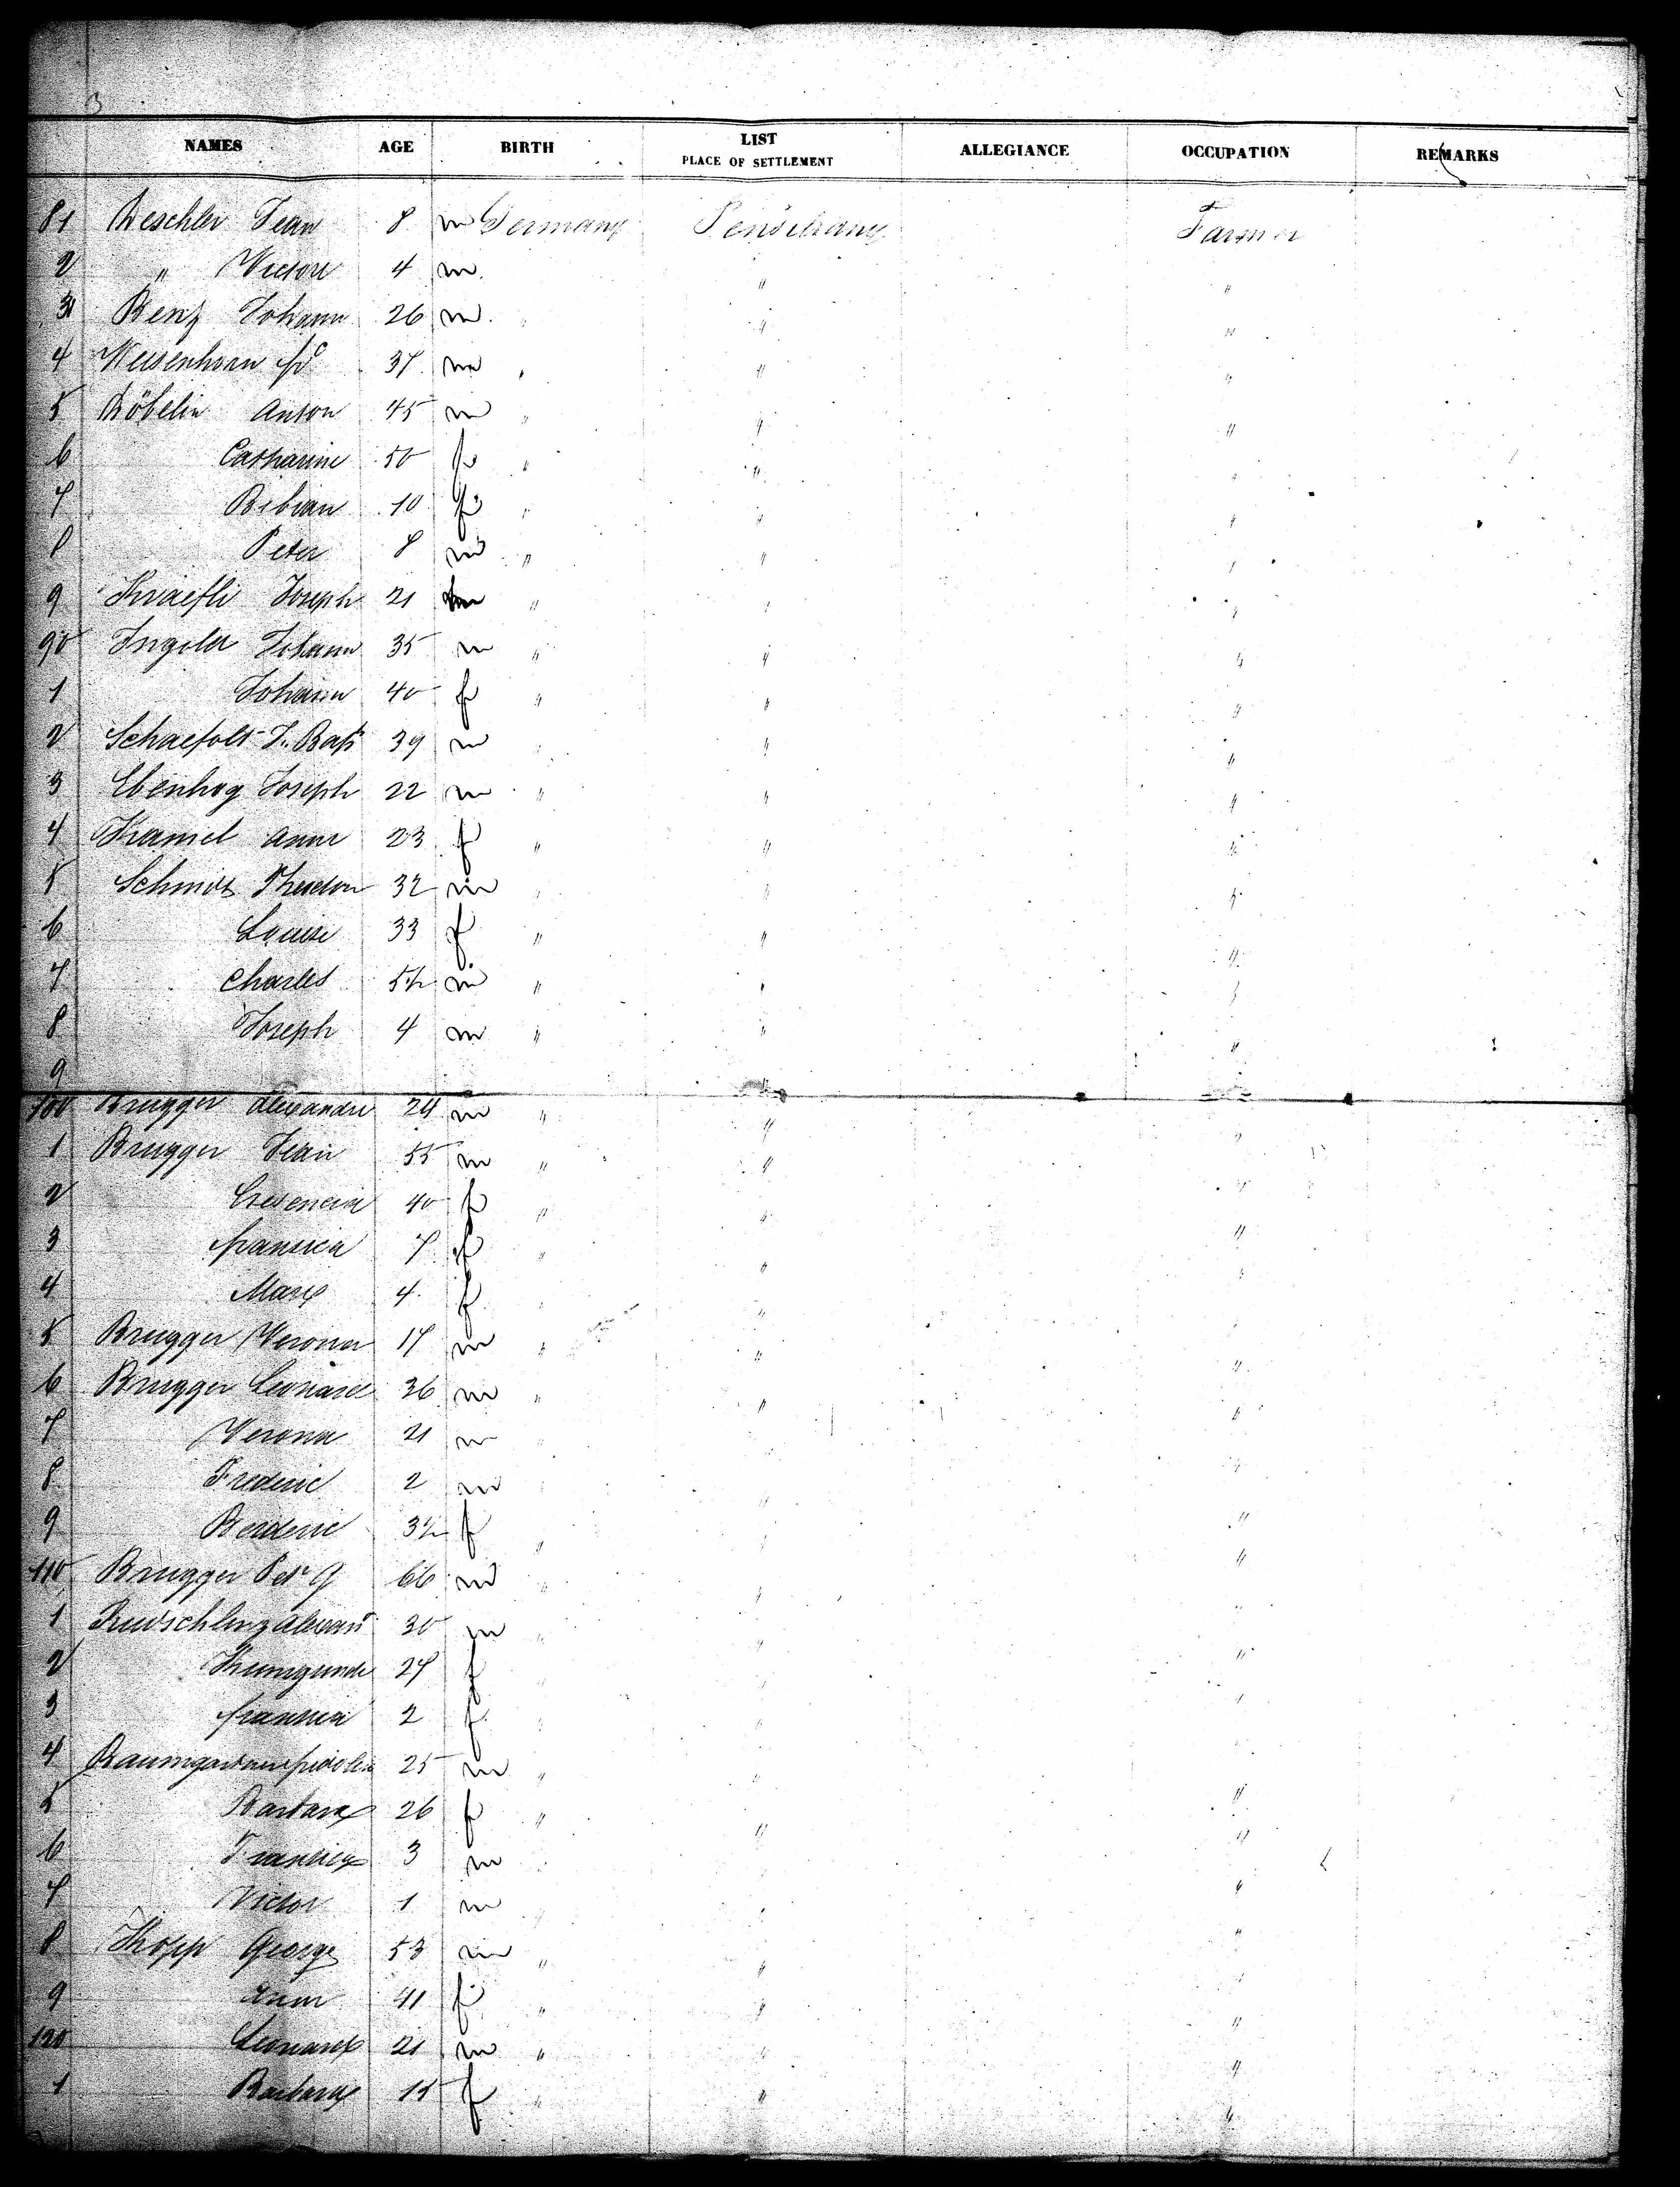 3
NAMES AGE BIRTH LIST PLACE OF SETTLEMENT ALLEGIANCE OCCUPATION REMARKS
81 Beschler Jean 8 m Germany Pensilvany Farmer
2 " Victore 4 m " "
3 Benz Johann 26 m " " "
4 Weisenhorn frc 37 m " " "
5 Böbelin Anton 45 m " " "
6 Catharine 50 f " " "
7 Bibian 10 f " " "
8 Peter 8 m " " "
9 Knaefli Joseph 21 m " " "
90 Ingold Johann 35 m " " "
1 Johann 40 f " " "
2 Schaefolt J. Bapt 39 m " " "
3 Ebenhog Joseph 22 m " " "
4 Kramel Anna 23 f " " "
5 Schmidt Theodor 32 m " " "
6 Louise 33 f " " "
7 Charles 5½ m " " "
8 Joseph 4 m " " "
9
100 Brugger Alexandre 24 m " " "
1 Brugger Jean 55 m " " "
2 Cresencia 40 f " " "
3 fransica 7 f " " "
4 Mary 4 f " " "
5 Brugger Verona 17 m " " "
6 Brugger Leonard 36 m " " "
7 Verona 21 m " "
8 Frederic 2 m " " "
9 Berderic 3½ f " " "
110 Brugger Petr G 66 m " " "
1 Alexandr 30 m " " "
2 Kunigunde 27 f " " "
3 fransica 2 f " " "
4 Baumgartner fridolin 25 m " " "
5 Barbara 26 f " "
6 Fransica 3 m " " "
7 Victor 1 m " " "
8 Kopp George 53 m " " "
9 Anna 41 f " " "
120 Leonard 21 m " " "
1 Barbara 15 f " " "